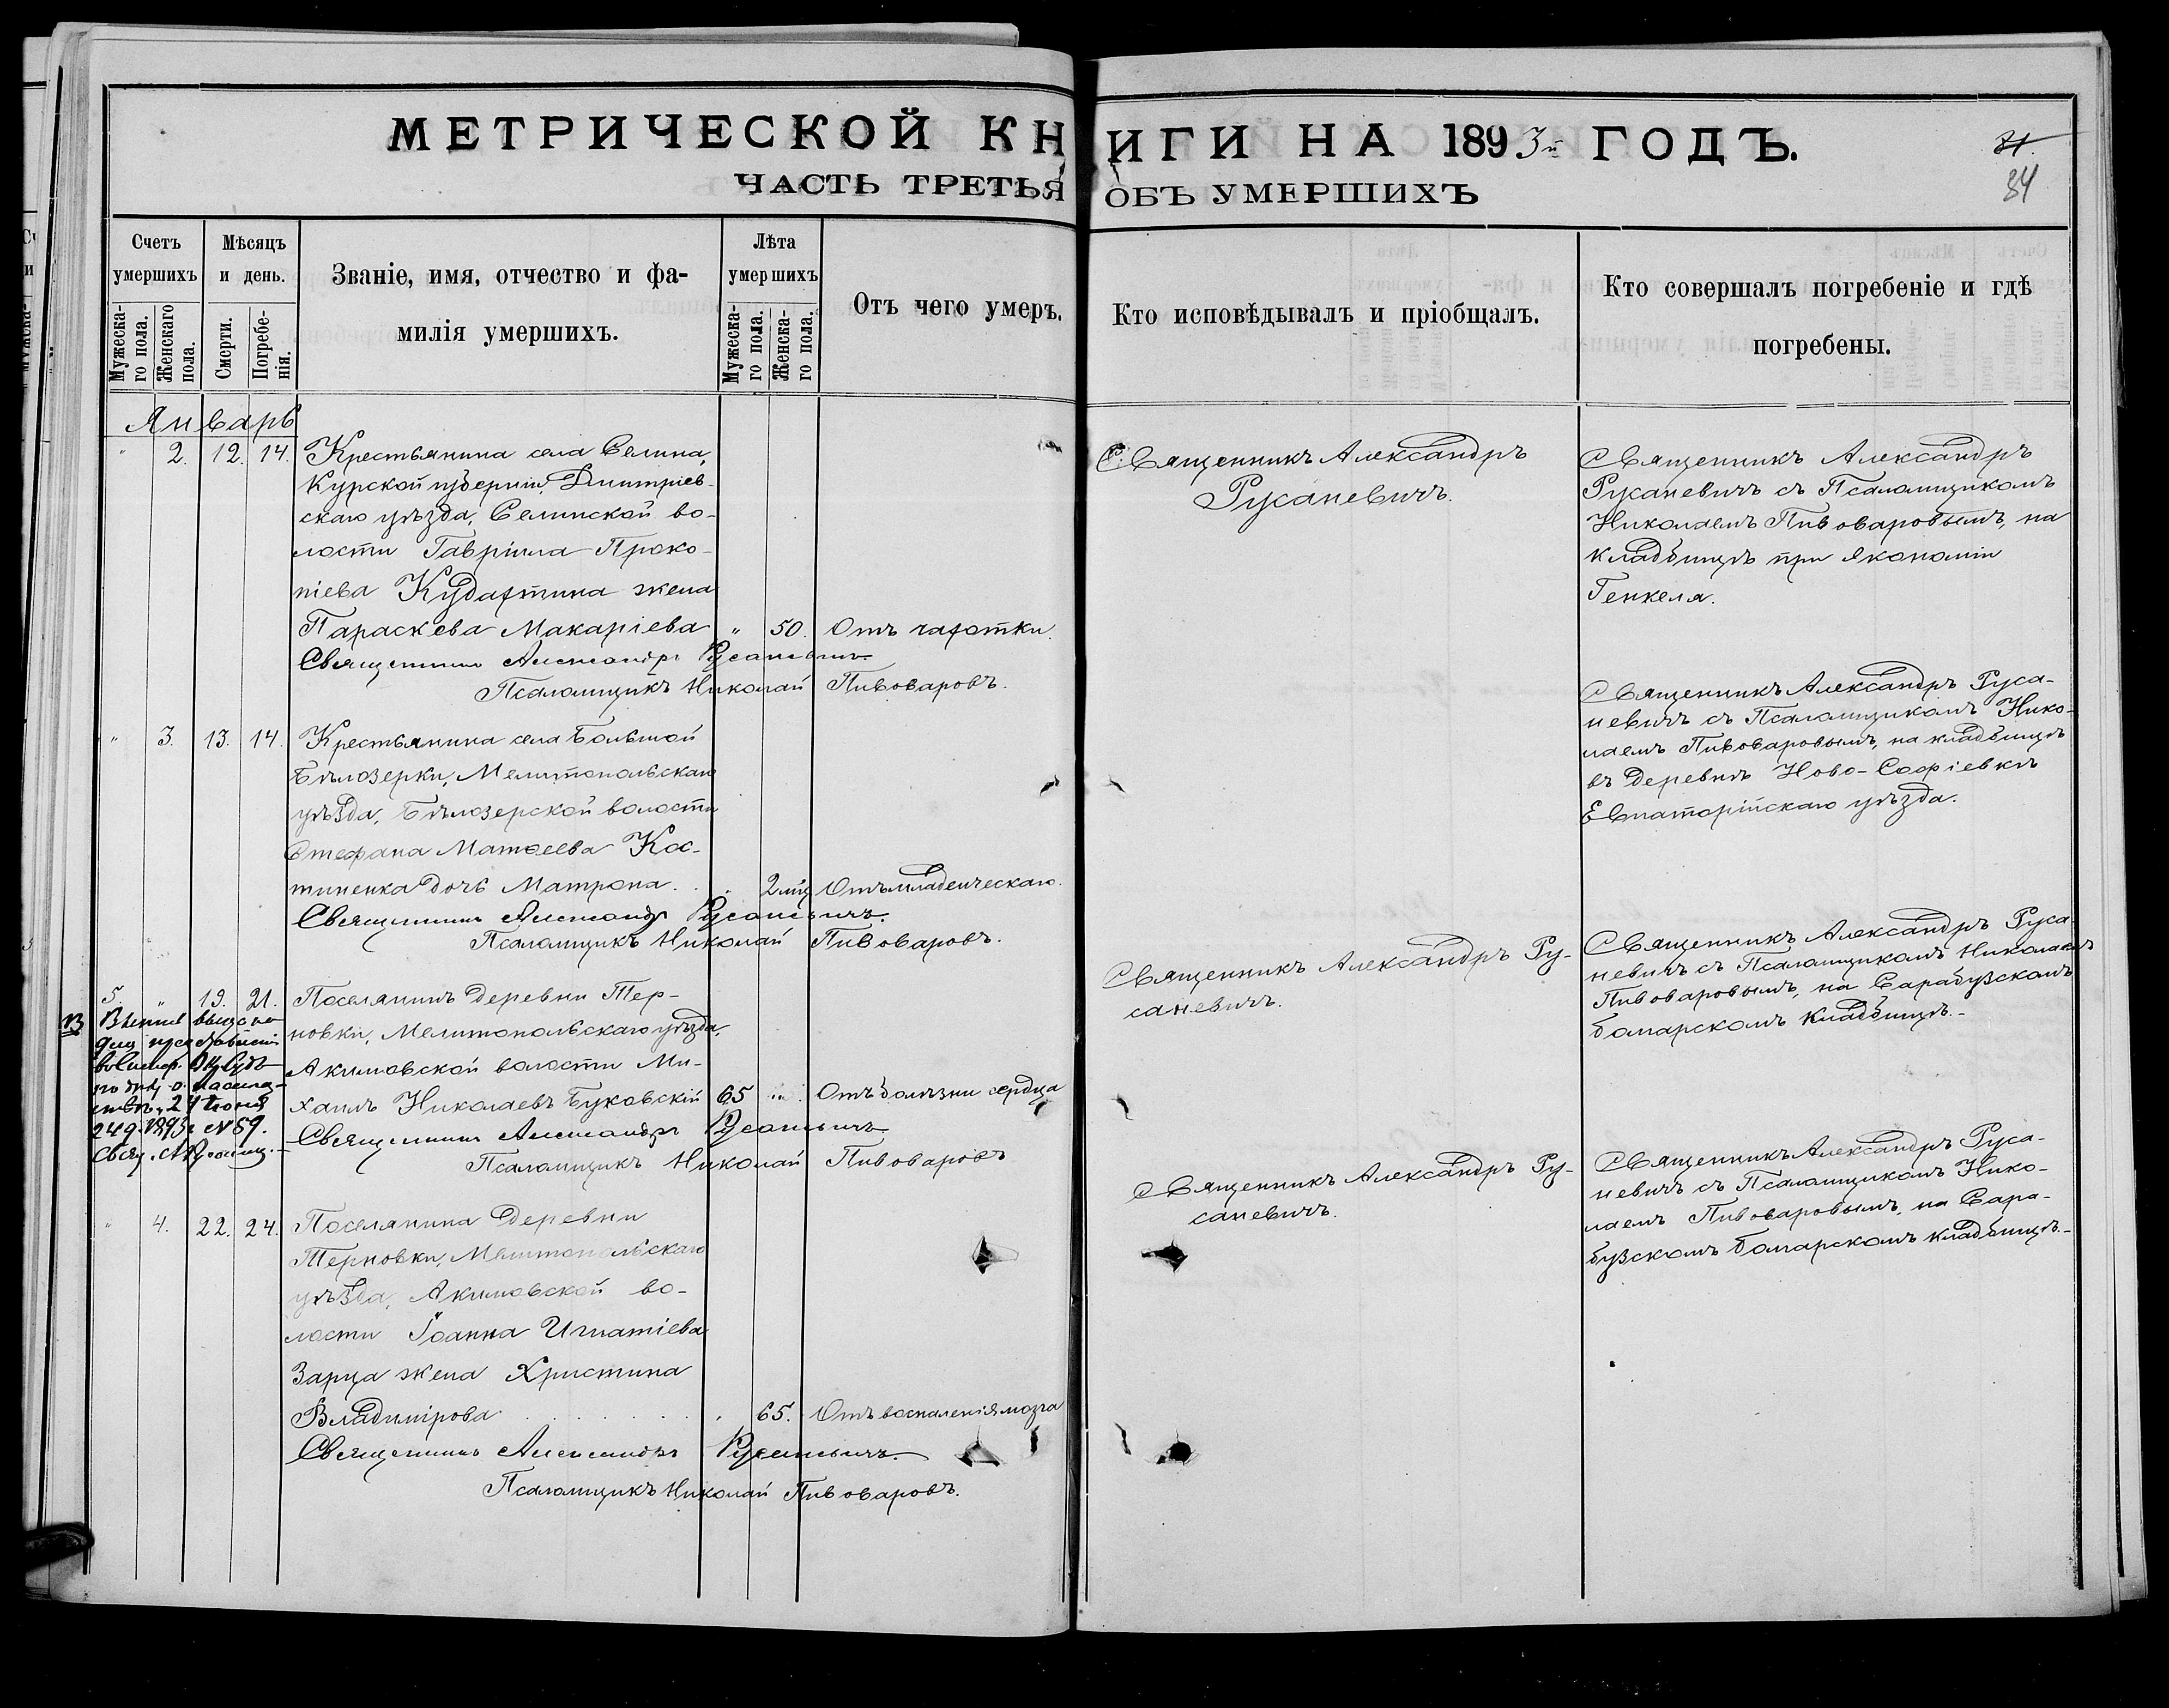 МЕТРИЧЕСКОЙ КНИГИ НА 1893й ГОДЪ.
31
34
ЧАСТЬ ТРЕТЬЯ ОБЪ УМЕРШИХЪ
Счетъ умершихъ
Мужеска-го пола.
Женскаго пола.
Мѣсяцъ и день.
Смерти.
Погребе-нія.
Званіе, имя, отчество и фа-
милія умершихъ.
Лѣта умершихъ
Мужеска-го пола.
Женска-го пола.
Отъ чего умеръ.
Кто исповѣдывалъ и пріобщалъ.
Кто совершалъ погребеніе и гдѣ
погребены.
Январь
" 2. 12. 14. Крестьянина села Селина,
Курской губерніи, Дмитріев-
скаго уѣзда, Селинской во-
лости Гавріила Проко-
піева Кудахтина жена
Параскева Макаріева " 50. Отъ чахотки.
Священникъ Александръ Русаневичъ
Псаломщикъ Николай Пивоваровъ.
Священникъ Александръ
Русаневичъ.
Священникъ Александръ
Русаневичъ съ Псаломщикомъ
Николаемъ Пивоваровымъ, на
кладбищѣ при экономіи
Генкеля.
" 3. 13. 14. Крестьянина села Большой
Бѣлозерки, Мелитопольскаго
уѣзда, Бѣлозерской волости
Стефана Матѳеева Кос-
тиненка дочь Матрона. " 2 мц Отъ младенческаго.
Священникъ Александръ Русаневичъ.
Псаломщикъ Николай Пивоваровъ.
Священникъ Александръ Руса-
невичъ съ Псаломщикомъ Нико-
лаемъ Пивоваровымъ, на кладбищѣ
въ деревнѣ Ново-Софіевкѣ
Евпаторійскаго уѣзда.
5. " 19. 21. Поселянинъ деревни Тер-
новки, Мелитопольскаго уѣзда,
Акимовской волости Ми-
хаилъ Николаевъ Буковскій 65 Отъ болѣзни сердца
Священникъ Александръ Русаневичъ
Псаломщикъ Николай Пивоваровъ
24 Іюня
1893г. № 89.
Священникъ Александръ Ру-
саневичъ.
Священникъ Александръ Руса-
невичъ съ Псаломщикомъ Николаемъ
Пивоваровымъ, на Сарабузскомъ
болгарскомъ кладбищѣ.
" 4. 22. 24. Поселянина деревни
Терновки, Мелитопольскаго
уѣзда, Акимовской во-
лости Іоанна Игнатіева
Зарца жена Христина
Владимірова . . . . 65. Отъ воспаленія мозга
Священникъ Александръ Русаневичъ.
Псаломщикъ Николай Пивоваровъ.
Священникъ Александръ Ру-
саневичъ.
Священникъ Александръ Руса-
невичъ съ Псаломщикомъ Нико-
лаемъ Пивоваровымъ, на Сара-
бузскомъ болгарскомъ кладбищѣ.